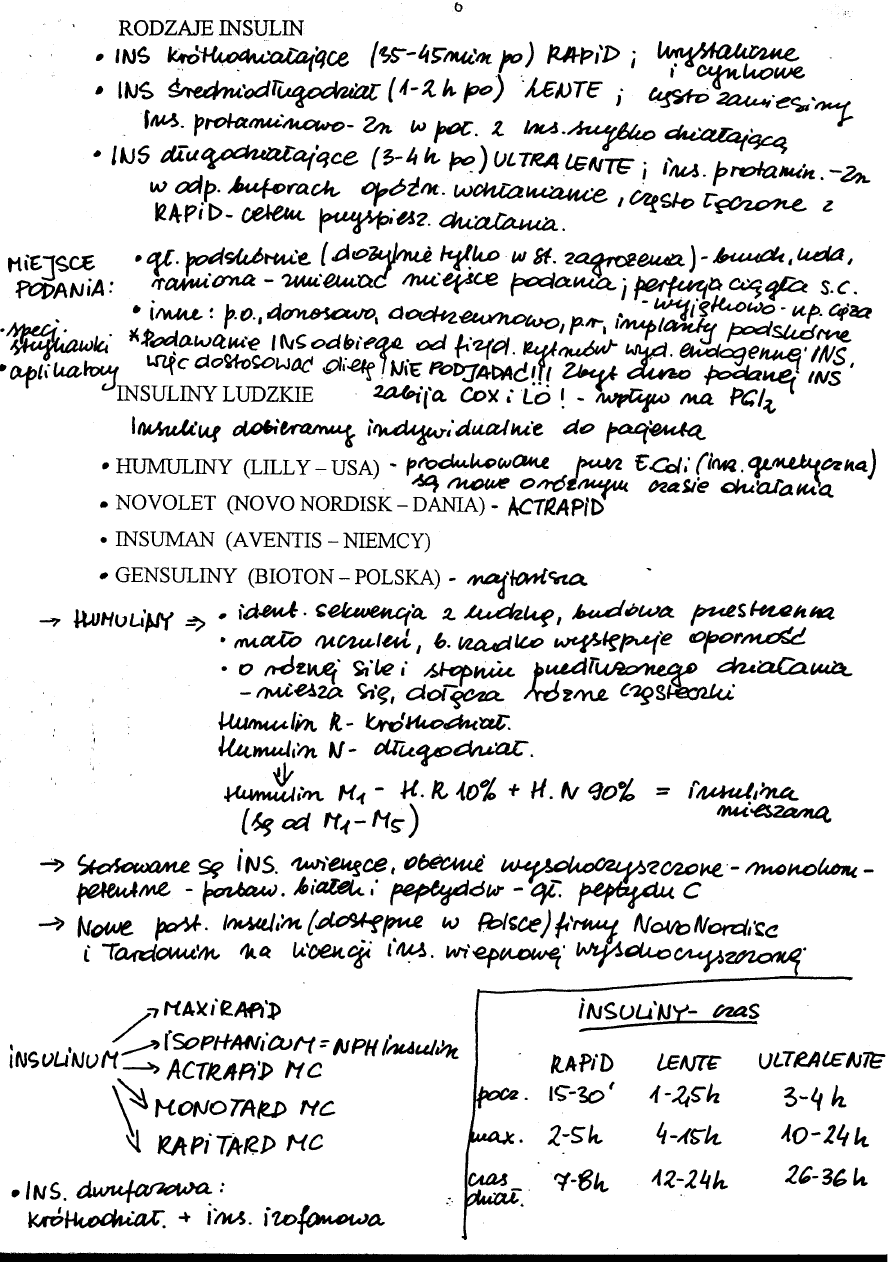 6
RODZAJE INSULIN
• INS krótkodziałające (35-45min po) RAPID ; krystaliczne
i cynkowe
• INS średniodługodział (1-2 h po) LENTE ; często zawiesiny
Ins. protaminowo-Zn w poł. z ins. szybko działającą
• INS długodziałające (3-4 h po) ULTRA LENTE ; ins. protamin.-Zn
w odp. buforach opóźn. wchłanianie, często łączone z
RAPID- celem przyspiesz. działania.
MIEJSCE
PODANIA:
• gł. podskórnie (dożylnie tylko w st. zagrożenia) - brzuch, uda,
ramiona - zmieniać miejsce podania ; perfuzja ciągła s.c.
- wyjątkowo - np. ciąża
• inne : p.o., donosowo, dootrzewnowo, p.r, implanty podskórne
• specj.
strzykawki
• aplikatory
* Podawanie INS odbiega od fizjol. rytmów wyd. endogennej INS,
więc dostosować dietę / NIE PODJADAĆ!!! Zbyt dużo podanej INS
zabija COX i LO ! - wpływ na PGI₂
INSULINY LUDZKIE
Insulinę dobieramy indywidualnie do pacjenta
• HUMULINY (LILLY – USA) - produkowane przez E.Coli (inż. genetyczna)
są nowe o różnym czasie działania
• NOVOLET (NOVO NORDISK – DANIA) - ACTRAPID
• INSUMAN (AVENTIS – NIEMCY)
• GENSULINY (BIOTON – POLSKA) - najtańsza
→ HUMULINY ⇒ • ident. sekwencja z ludzką, budowa przestrzenna
• mało uczuleń, b. rzadko występuje oporność
• o różnej sile i stopniu przedłużonego działania
- miesza się, dołącza różne cząsteczki
Humulin R - krótkodział.
Humulin N - długodział.
⇓
Humulin M₁ - H. R 10% + H. N 90% = insulina
mieszana
(są od M₁-M₅)
→ Stosowane są INS. zwierzęce, obecnie wysokoczyszczone - monokom-
petentne - pozbaw. białek i peptydów - gł. peptydu C
→ Nowe post. Insulin (dostępne w Polsce) firmy NovoNordisc
i Tardomin na licencji ins. wieprzowej wysokoczyszczonej
INSULINUM
→ MAXIRAPID
→ ISOPHANICUM = NPH Insulin
→ ACTRAPID MC
MONOTARD MC
RAPITARD MC
• INS. dwufazowa :
krótkodział. + ins. izofanowa
INSULINY - czas
RAPID LENTE ULTRALENTE
pocz. 15-30' 1-2,5h 3-4 h
max. 2-5h 4-15h 10-24h
czas
dział. 7-8h 12-24h 26-36h